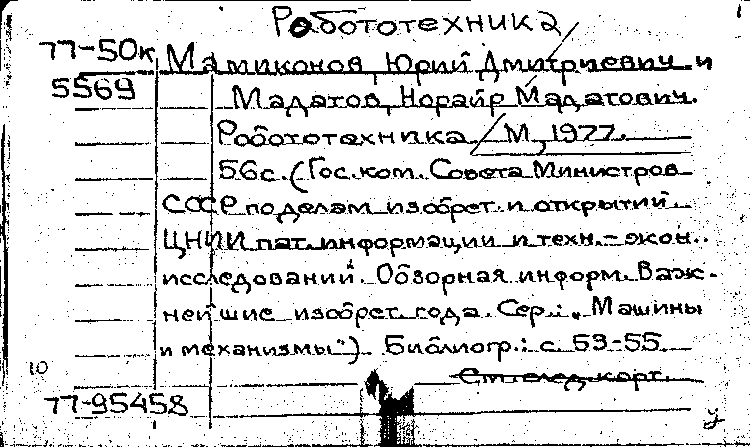 Робототехника
77-50к Мамиконов, Юрий Дмитриевич и
5569 Мадатов, Норайр Мадатович.
Робототехника. М., 1977.
56с. (Гос. ком. Совета Министров
СССР по делам изобрет. и открытий.
ЦНИИ пат. информации и техн.-экон.
исследований. Обзорная информ. Важ-
нейшие изобрет. года. Сер.: "Машины
и механизмы"). Библиогр.: с. 53-55.
10
См. след. карт.
77-95458